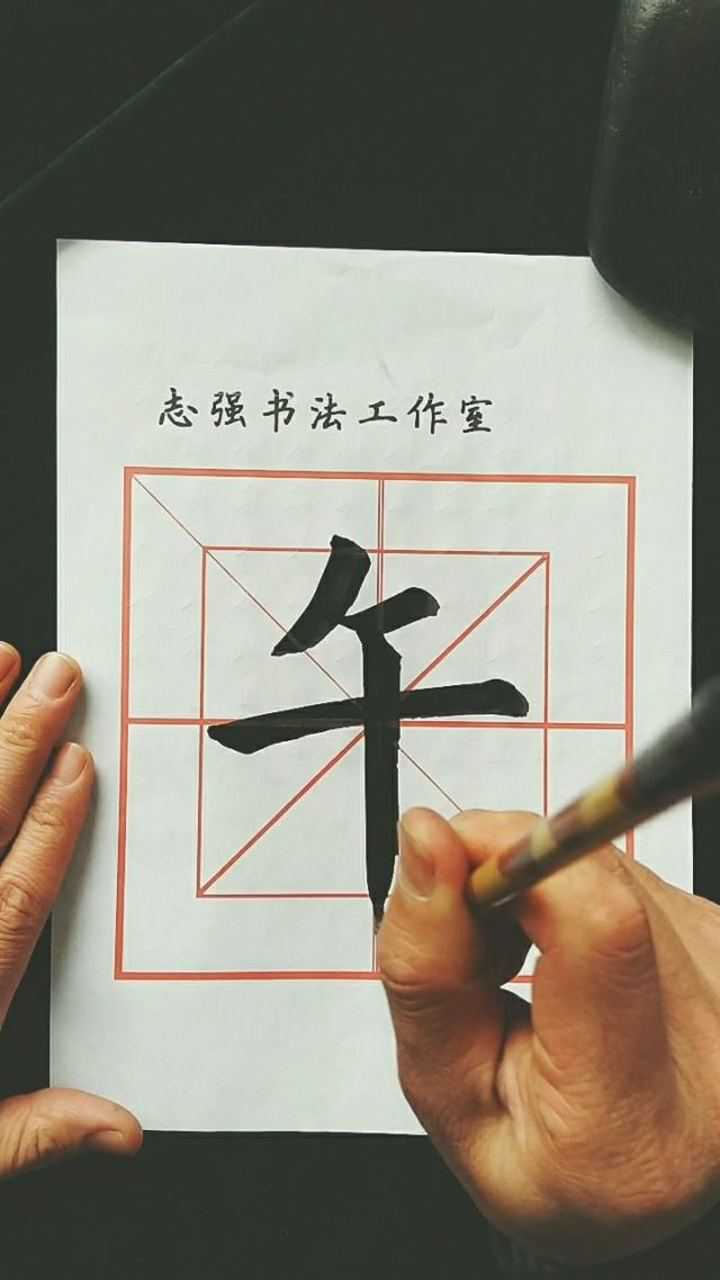 志强书法工作室
午